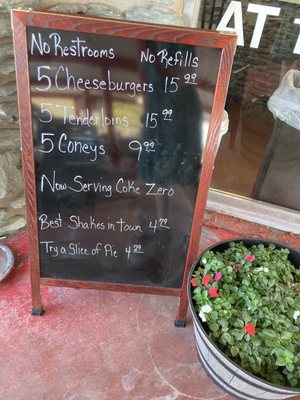 No Restrooms No Refills
5 Cheeseburgers 15.99
5 Tenderloins 15.99
5 Coneys 9.99
Now Serving Coke Zero
Best Shakes in town 4.79
Try a Slice of Pie 4.29
AT